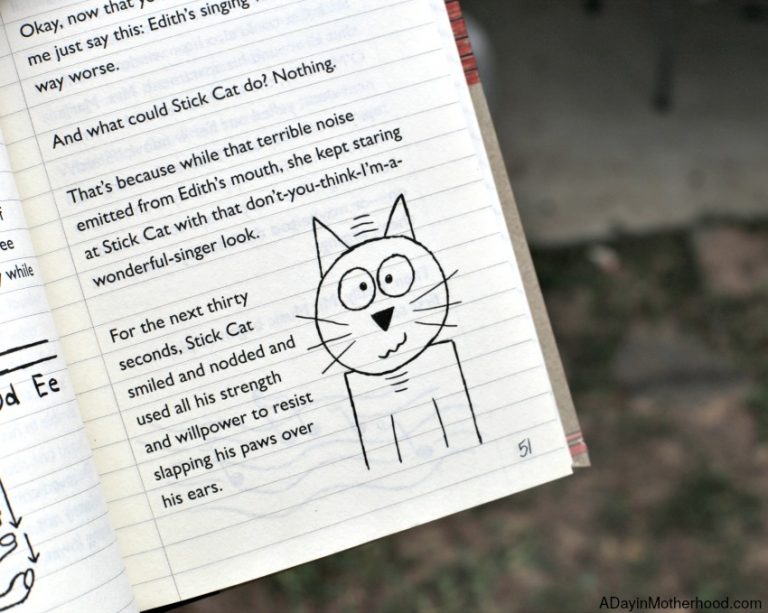 ee
while
d Ee
Okay, now that
me just say this: Edith's singing
way worse.
And what could Stick Cat do? Nothing.
That's because while that terrible noise
emitted from Edith's mouth, she kept staring
at Stick Cat with that don't-you-think-I'm-a-
wonderful-singer look.
For the next thirty
seconds, Stick Cat
smiled and nodded and
used all his strength
and willpower to resist
slapping his paws over
his ears.
51
ADayinMotherhood.com